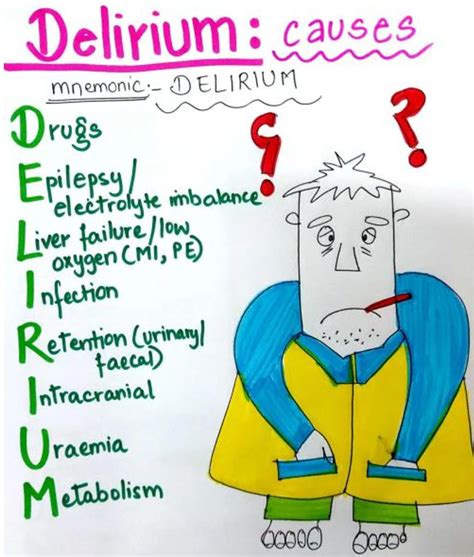 Delirium: causes
mnemonic:- DELIRIUM
Drugs
Epilepsy/
electrolyte imbalance
Liver failure/low
oxygen (MI, PE)
Infection
Retention (urinary/
faecal)
Intracranial
Uraemia
Metabolism